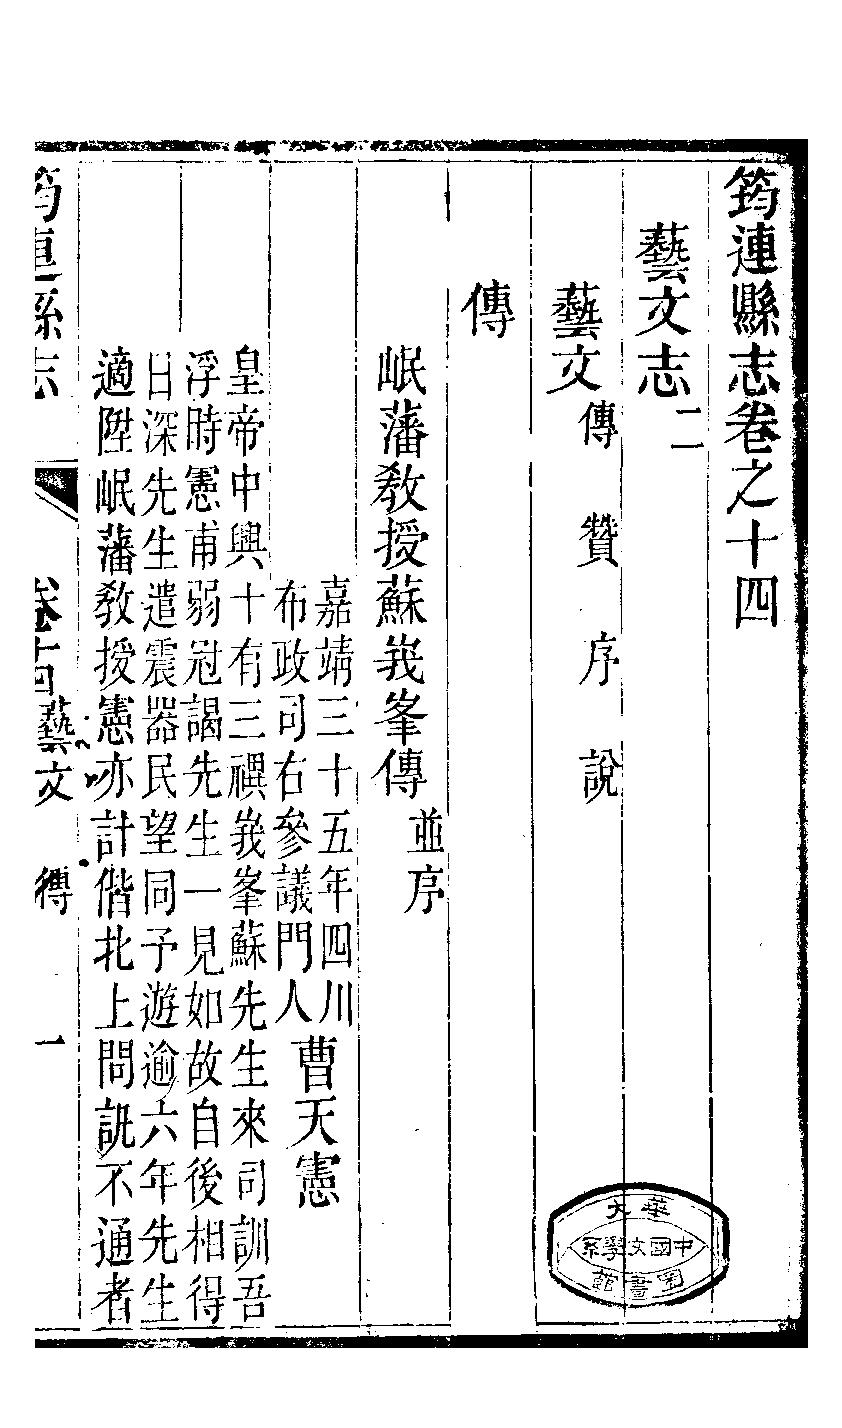 筠連縣志卷之十四
藝文志二
藝文 傳 贊 序 說
傳
岷藩敎授蘇峩峯傳 並序
嘉靖三十五年四川
布政司右參議門人曹天憲
皇帝中興十有三禩峩峯蘇先生來司訓吾
浮時憲甫弱冠謁先生一見如故自後相得
日深先生遣震器民望同予遊逾六年先生
適陞岷藩敎授憲亦計偕北上問訊不通者
筠連縣志 卷十四 藝文 傳 一
華大
中國文學系
圖書館